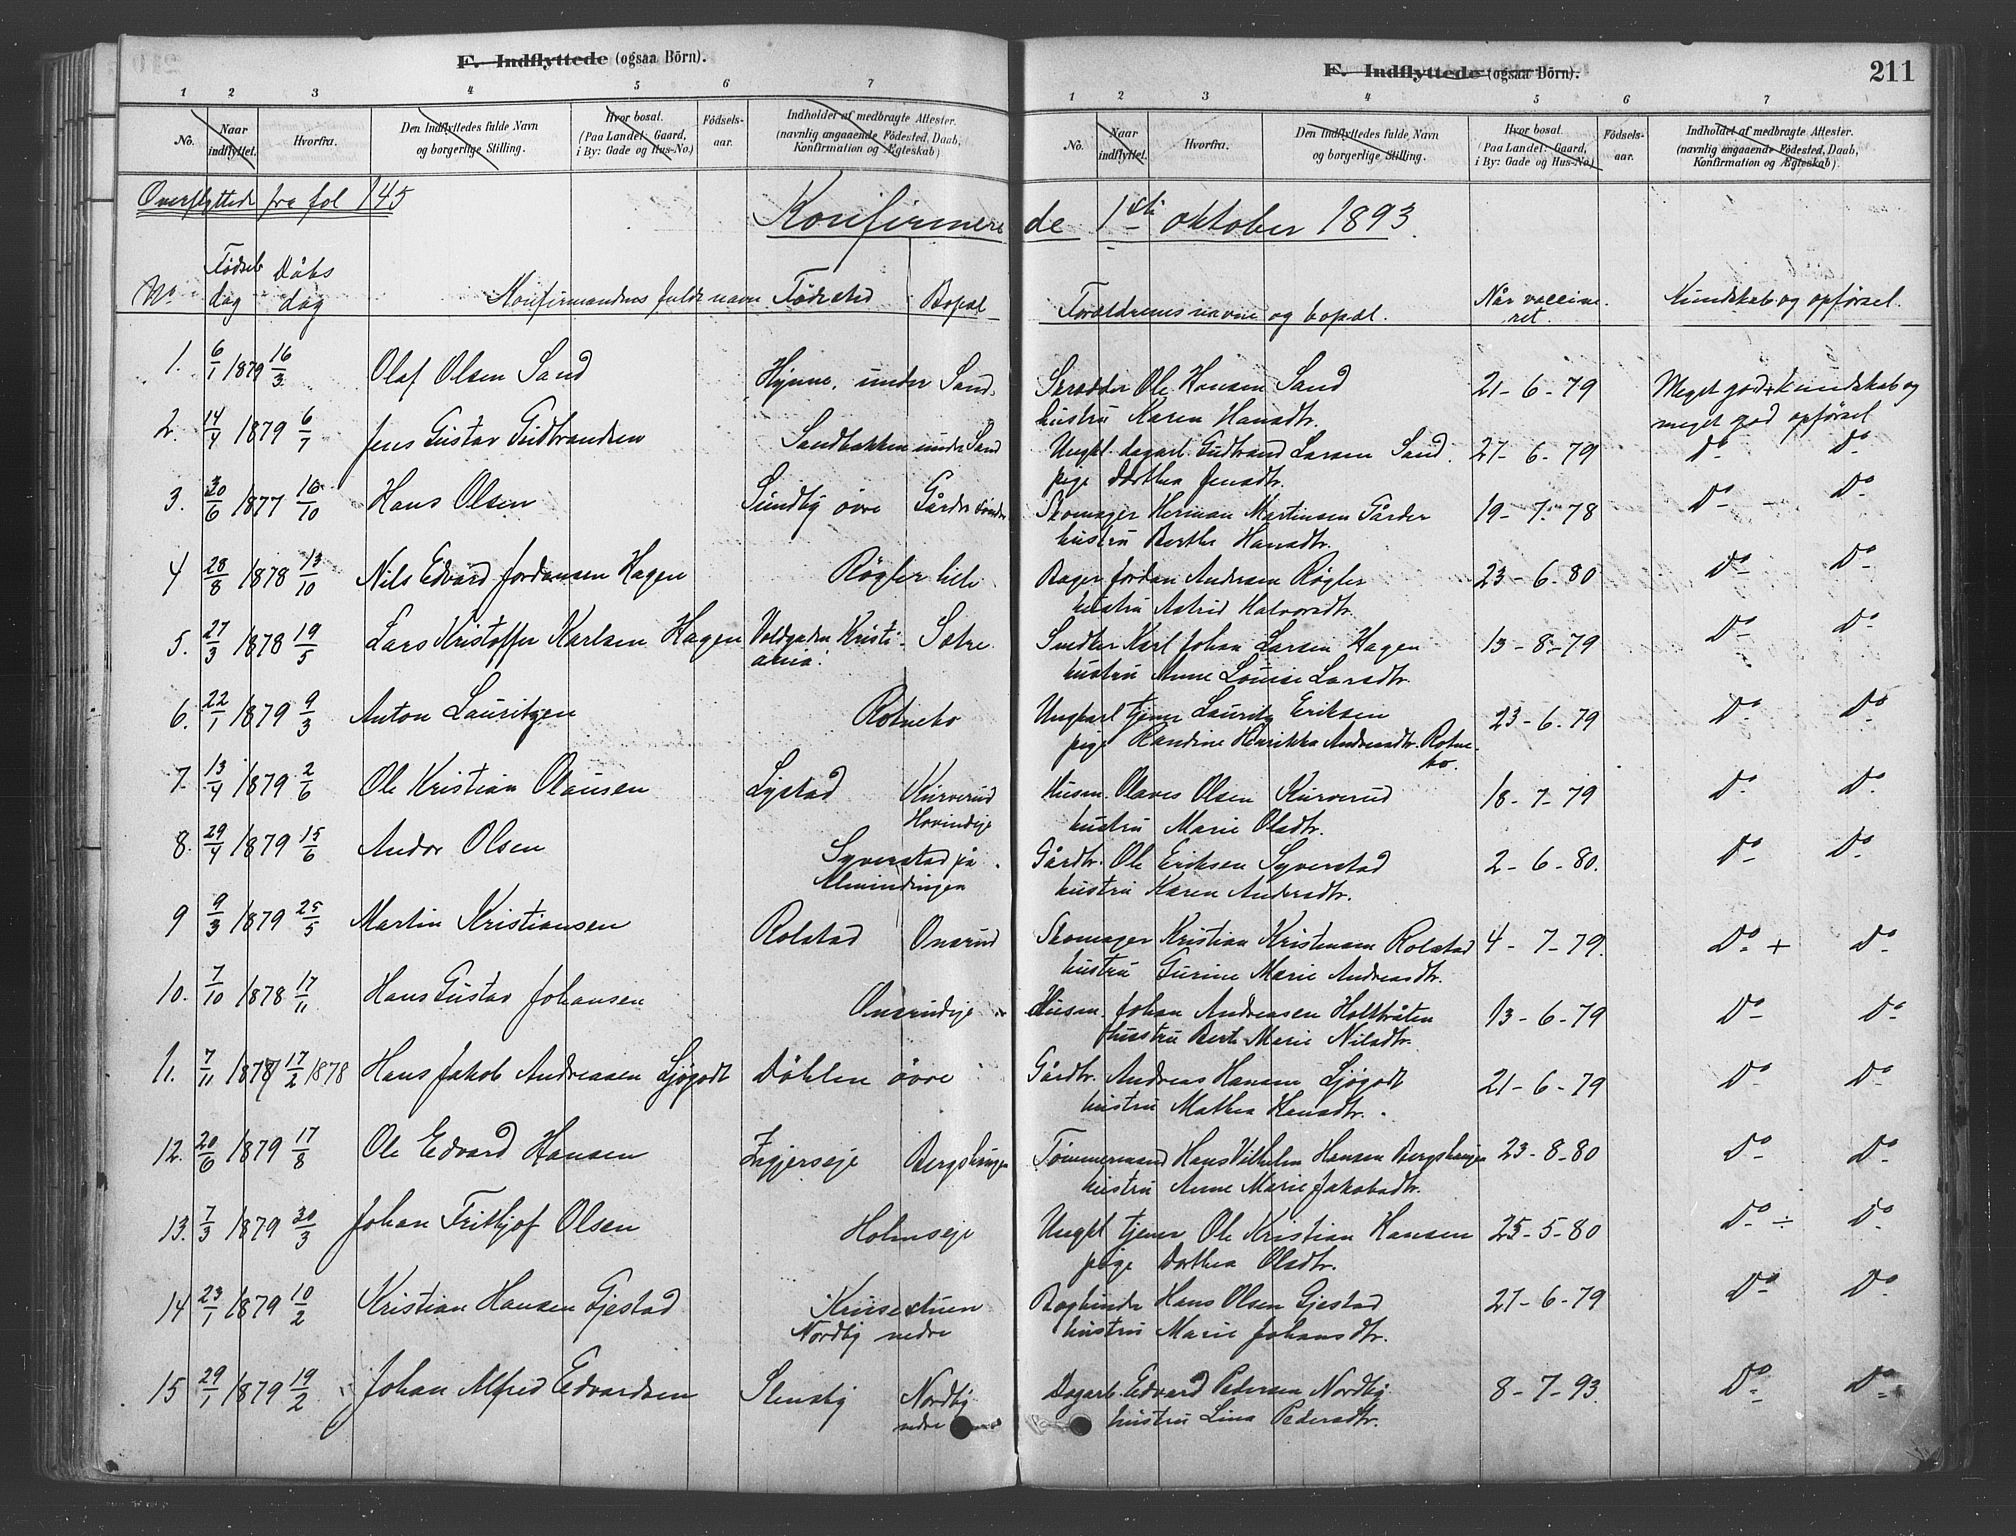 F. Indflyttede (ogsaa Börn).
1 2 3 4 5 6 7
No. Naar indflyttet. Hvorfra. Den Indflyttedes fulde Navn og borgerlige Stilling. Hvor bosat. (Paa Landet: Gaard, i By: Gade og Hus-No.) Födsels-aar. Indholdet af medbragte Attester. (navnlig angaaende Födested, Daab, Konfirmation og Ægteskab)
F. Indflyttede (ogsaa Börn). 211
1 2 3 4 5 6 7
No. Naar indflyttet. Hvorfra. Den Indflyttedes fulde Navn og borgerlige Stilling. Hvor bosat. (Paa Landet: Gaard, i By: Gade og Hus-No.) Födsels-aar. Indholdet af medbragte Attester. (navnlig angaaende Födested, Daab, Konfirmation og Ægteskab)
Overflyttede fra fol 145
Konfirmerede 1ste oktober 1893.
No Fødselsdag Dåbsdag Konfirmandens fulde navn Fødested Bopæl Forældrenes navne og bopæl. Når vaccineret. Kundskab og opførsel.
1. 6/1 1879 16/3 Olaf Olsen Sand Hynne, under Sand. Skrædder Ole Hansen Sand 21-6-79 Meget god + kundskab og
hustru Karen Hansdtr. meget god opførsel
2. 14/4 1879 6/7 Jens Gustav Gudbrandsen Sandbakken under Sand Ungkl. dagarb. Gudbrand Larsen Sand. 27-6-79 Do Do
pige Dorthea Jensdtr.
3. 30/6 1877 16/10 Hans Olsen Sundby övre Gårder Skomager Herman Martinsen Gårder 19-7-78 Do - Do
hustru Berthe Hansdtr.
4 28/8 1878 13/10 Nils Edvard Jordansen Hagen Røgler lille Bager Jordan Andersen Røgler 23-6-80 Do Do
hustru Astrid Halvorsdtr.
5. 27/3 1878 19/5 Lars Kristoffer Karlsen Hagen Voldgaden Kristiania. Sætre Snedker Karl Johan Larsen Hagen 13-8-79 Do Do
hustru Anne Louise Larsdtr.
6. 22/1 1879 9/3 Anton Lauritzen Rotnebo Ungkarl tjener Lauritz Eriksen 23-6-79 Do Do
pige Randine Henrikka Andreasdtr. Rotnebo.
7. 13/4 1879 2/6 Ole Kristian Olausen Lystad Kurverud Hovindeje Husm. Olaves Olsen Kurverud 18-7-79 Do Do
hustru Marie Olsdtr.
8. 29/4 1879 15/6 Andor Olsen Syverstad på Almindingen Gårdbr. Ole Eriksen Syverstad 2-6-80. Do Do
hustru Karen Andersdtr.
9 9/3 1879 25/5 Martin Kristiansen Rolstad Onsrud Skomager Kristian Kristensen Rolstad 4-7-79. Do + Do
hustru Gurine Marie Andreasdtr.
10. 7/10 1878 17/11 Hans Gustav Johansen Onsrudeje Husm. Johan Andreasen Holtbråten 13-6-79 Do Do
hustru Berte Marie Nilsdtr.
11. 7/11 1877 17/2 1878 Hans Jakob Andreasen Ljøgodt Döhlen övre Gårdbr. Andreas Hansen Ljøgodt 21-6-79 Do Do
hustru Mathea Hansdtr.
12. 20/6 1879 17/8 Ole Edvard Hansen Ingjerseje Bergshaugen Tømmermand Hans Vilhelm Hansen Bergshaugen 23-8-80 Do Do
hustru Anne Marie Jakobsdtr.
13. 7/3 1879 30/3 Johan Frithjof Olsen Holmseje Ungkl tjener Ole Kristian Hansen 25-5-80 Do ÷ Do
pige Dorthea Olsdtr.
14 23/1 1879 10/2 Kristian Hansen Gjestad Krussestuen Nordby nedre Bogbinder Hans Olsen Gjestad 27-6-79 Do Do
hustru Marie Johansdtr.
15 29/1 1879 19/2 Johan Alfred Edvardsen Stensby Nordby nedre Dagarb. Edvard Pedersen Nordby 8-7-93. Do Do
hustru Lina Pedersdtr.